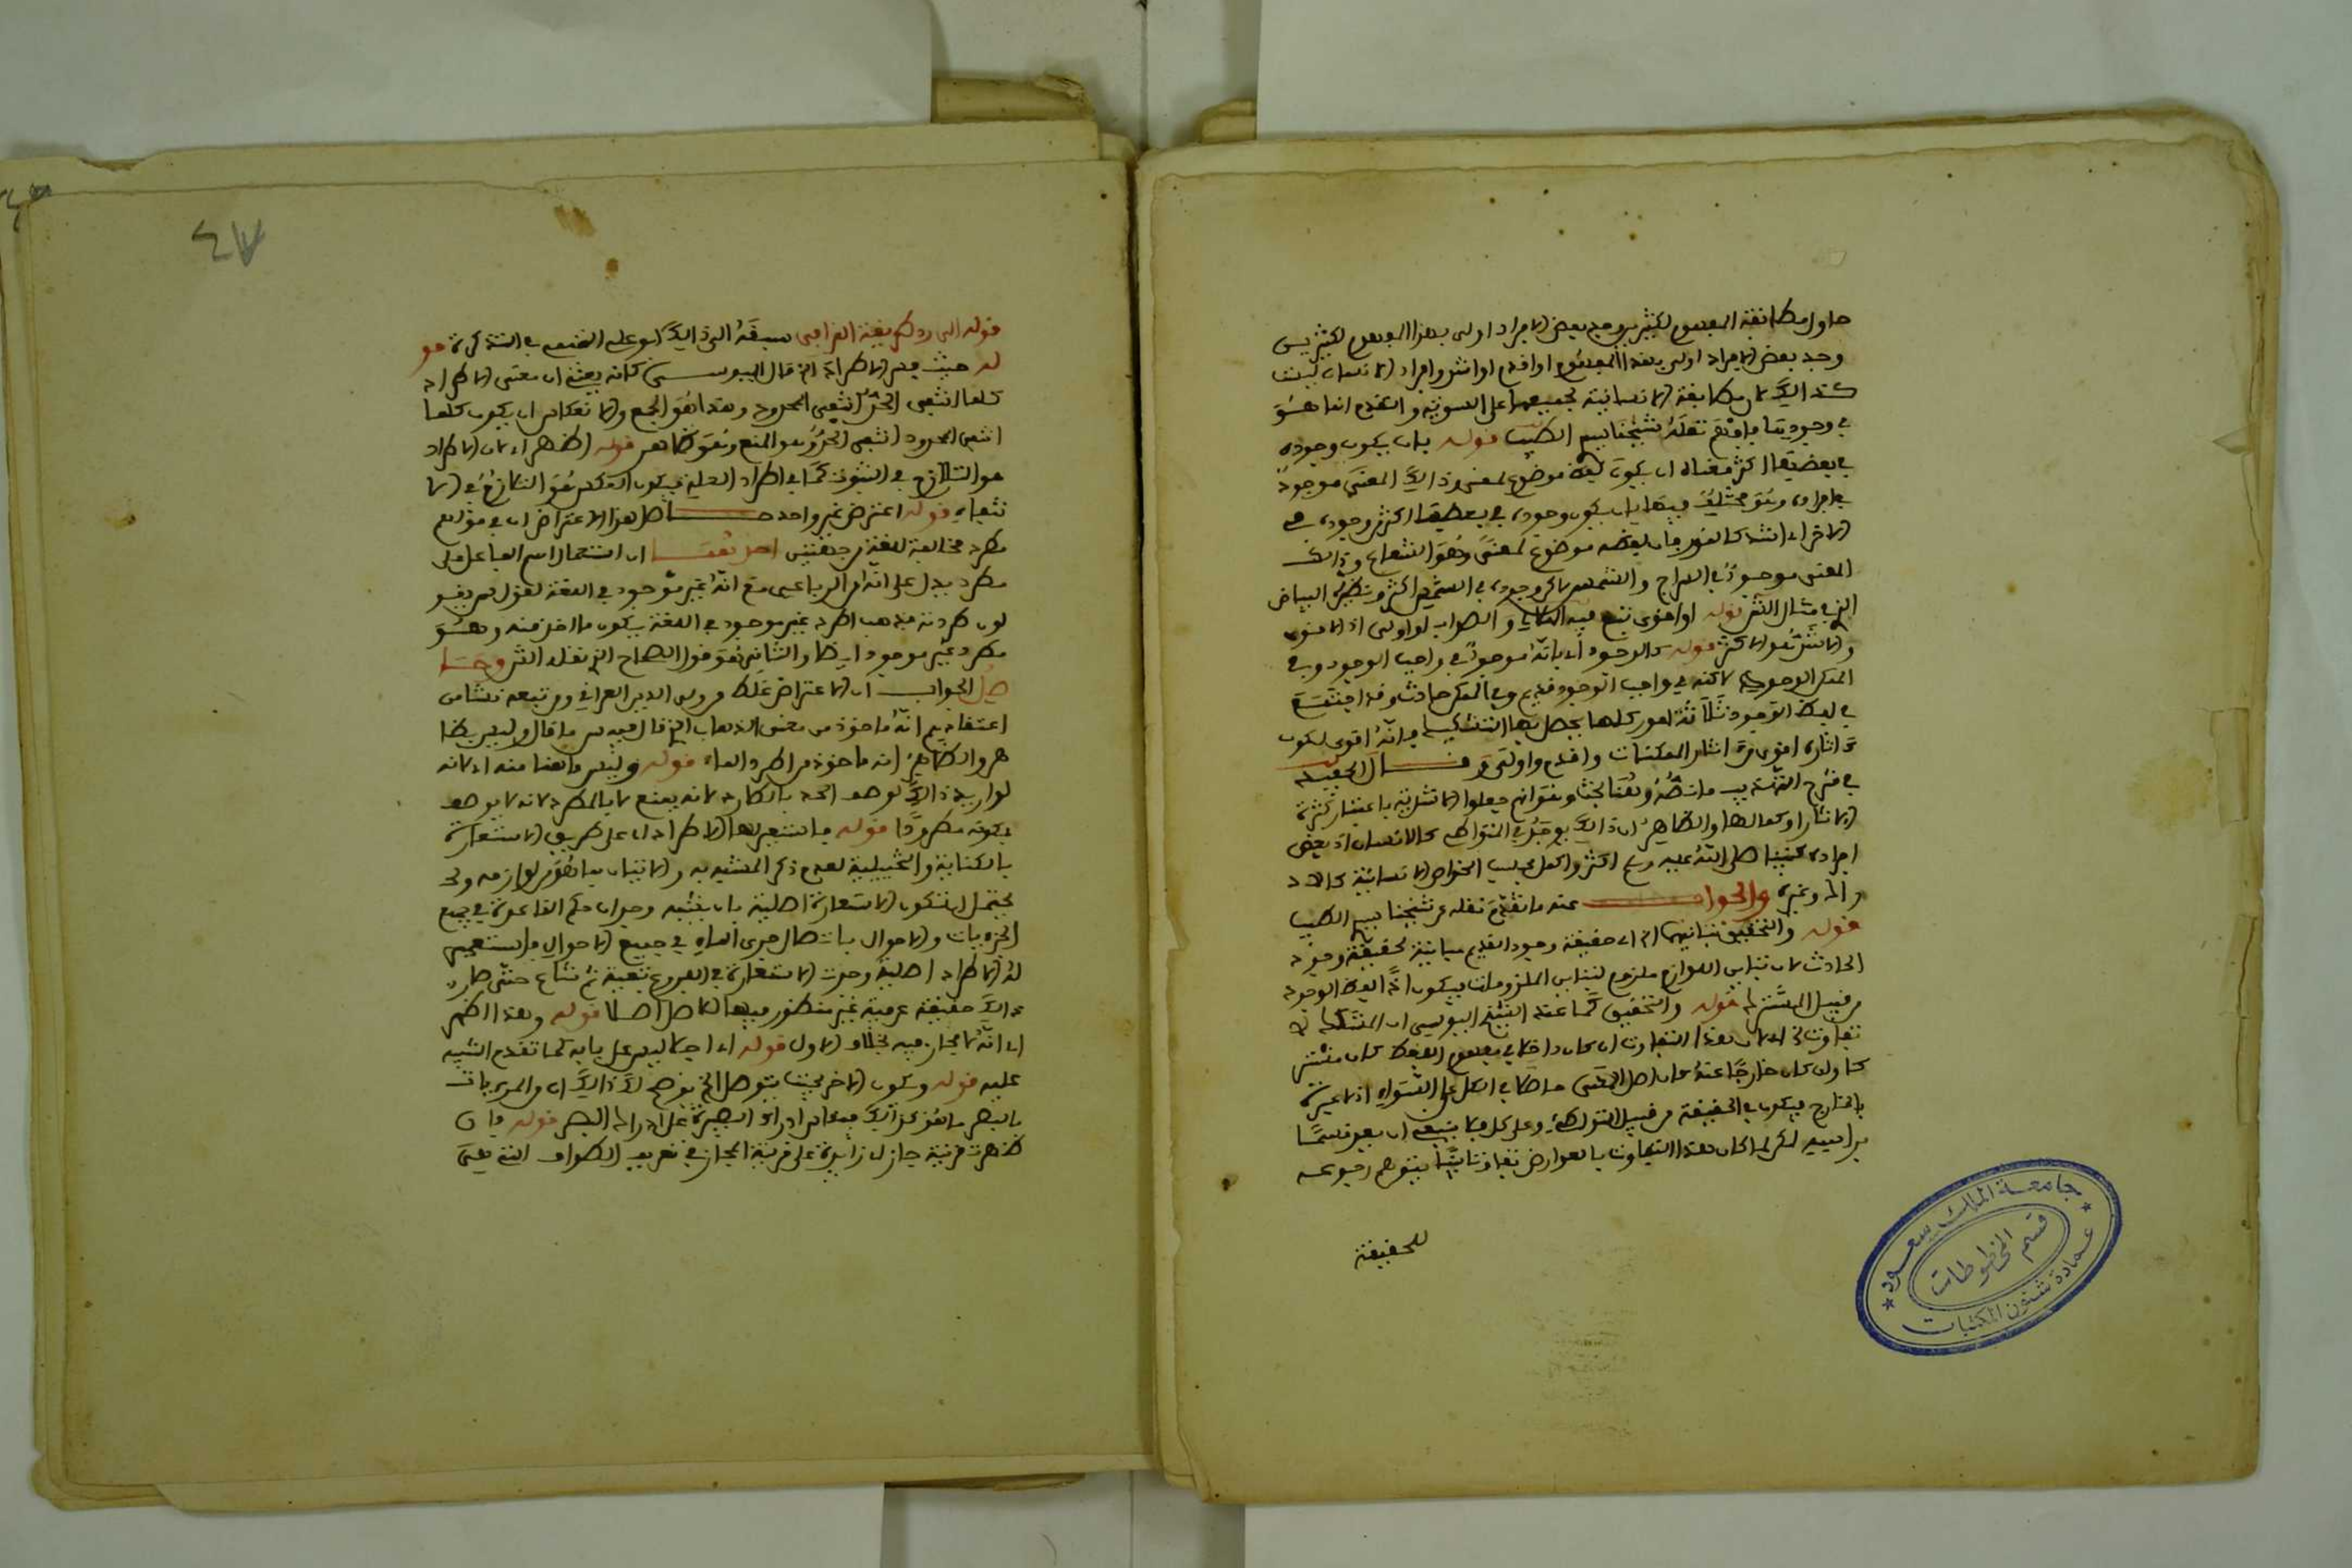 حاول مطابقة المفهوم لكثيرين وجد بعض الافراد اولى بهذا المفهوم لكثيرين
وجد بعض الافراد اولى بهذا المفهوم او اقدم او اشد وافراد الانسان ليست
كذالك لان مطابقة الانسانية لجميعها على السوية والتقدم انما هو
في وجودي نقله شيخنا الطيب قوله بان يكون وجوده
في بعضها اكثر معناه ان يكون لفظ موضوع لمعنى وذالك المعنى موجود
في افراده وهو مختلف فيها بان يكون وجوده في بعضها اكثر من وجوده في
الاخر اي اشد كالنور فان لفظه موضوع لمعنى وهو الشعاع وذالك
المعنى موجود في السراج والشمس لاكن وجوده في الشمس اكثر ونظيره البياض
الخ في مثال الش قوله او اقوى تبع فيه والصواب او اولى اذ الاقوى
والاشد هو الاكثر قوله كالوجود اي بانه موجود في واجب الوجود وفي
الممكن الوجود لاكنه في واجب الوجود قديم وفي الممكن حادث وقد اجتمع
في لفظ الوجود ثلاثة امور كلها يحصل بها التشكيك فانه اقوى لكون
اثاره اقوى من اثار الممكنات واقدم واولى وقال الحفيد
في شرح التهذيب ما نصه وهنا بحث وهو انهم جعلوا الاشدية باعتبار كثرة
الاثار او كمالها والظاهر ان ذالك يوجد في المتواطي كالانسان اذ بعض
افراده كنبينا صلى الله عليه وسلم اكثر واكمل بحسب الخواص الانسانية كالاد
راك وغيره والجواب عنه ما تقدم نقله عن شيخنا الطيب
قوله والتحقيق تباينهما الخ اي حقيقة وجود القديم مباينة لحقيقة وجود
الحادث لان تباين اللوازم ملزوم لتباين الملزومات فيكون لفظ الوجود
من قبيل المشترك قوله والتحقيق كما عند الشيخ اليوسي ان المشكك لا
تفاوت الخ اي لان هذا التفاوت ان كان داخلا في مفهوم اللفظ كان مشتر
كا وان كان خارجا عنه كان اصل المعنى حاصلا في الكل على السواء اذ لا عبرة
بالخارج فيكون في الحقيقة من قبيل المتواطي وعلى كل فلا ينبغي ان يعد قسما
براسه لكن لما كان هذا التفاوت بالعوارض تفاوتا يتوهم رجوعه
للحقيقة
جامعة الملك سعود
قسم المخطوطات
عمادة شئون المكتبات
٤٧
قوله الى رد طريقة القرافي سبقه الى ذالك ابو علي في التذكرة
له حيث فسر الاطراد الخ قال اليوسي كانه يعني ان معنى الاطراد
كلما انتفى الحد انتفى المحدود وهذا هو الجمع والانعكاس ان يكون كلما
انتفى المحدود انتفى الحد وهو المنع وهو ظاهر قوله اظهر اي لان الاطراد
هو التلازم في الثبوت كما في اطراد العلة فيكون العكس هو التلازم في الا
نتفاء قوله اعترض غير واحد حاصل هذا الاعتراض ان في قولهم
مطرد مخالفة للغة من جهتين احدهما ان استعمال اسم الفاعل على
مطرد يدل على انه من الرباعي مع انه غير موجود في اللغة لقولهم
طردته فذهب اطرد غير موجود في اللغة يكون ما اخذ منه وهو
مطرد غير موجود ايضا والثاني هو قول الصحاح الخ نقله الش وحا
صل الجواب ان الاعتراض غلط من ولي الدين العراقي ومن تبعه نشا من
اعتقادهم انه ماخوذ من معنى الذهاب الخ قال فيه س ما قال وليس بظا
هر والظاهر انه ماخوذ من اطرد الماء قوله وليس ما هنا منه اي لانه
لو اريد ذالك لوصف الحد بالطارد لانه يمنع لا بالمطرد لانه لا يوصف
بكونه مطرودا قوله فاستعير لها الاطراد اي على طريق الاستعارة
بالكناية والتخييلية لعدم ذكر المشبه به والاتيان بما هو من لوازمه وقد
يحتمل ان تكون الاستعارة اصلية بان يشبه وجدان حكم القاعدة في جميع
الجزءيات والاحوال باتصال جري الماء في جميع الاحوال فاستعير
له الاطراد اصلية وجرت الاستعارة في الفروع تبعية ثم شاع حتى صار
ذالك حقيقة عرفية غير منظور فيها للاصل اصلا قوله وهذا اظهر
اي انه لا مجاز فيه بخلاف الاول قوله اي اجمالا ليس على بابه كما تقدم التنبيه
عليه قوله وكون الاخر بحيث يتوصل الخ يوضح لك ذالك ان المريات
بالبصر ادراك البصيرة على ادراك البصر قوله وان
ظهرت قرينة جاز اي زايدة على قرينة المجاز في تعريف الطواف التي هي